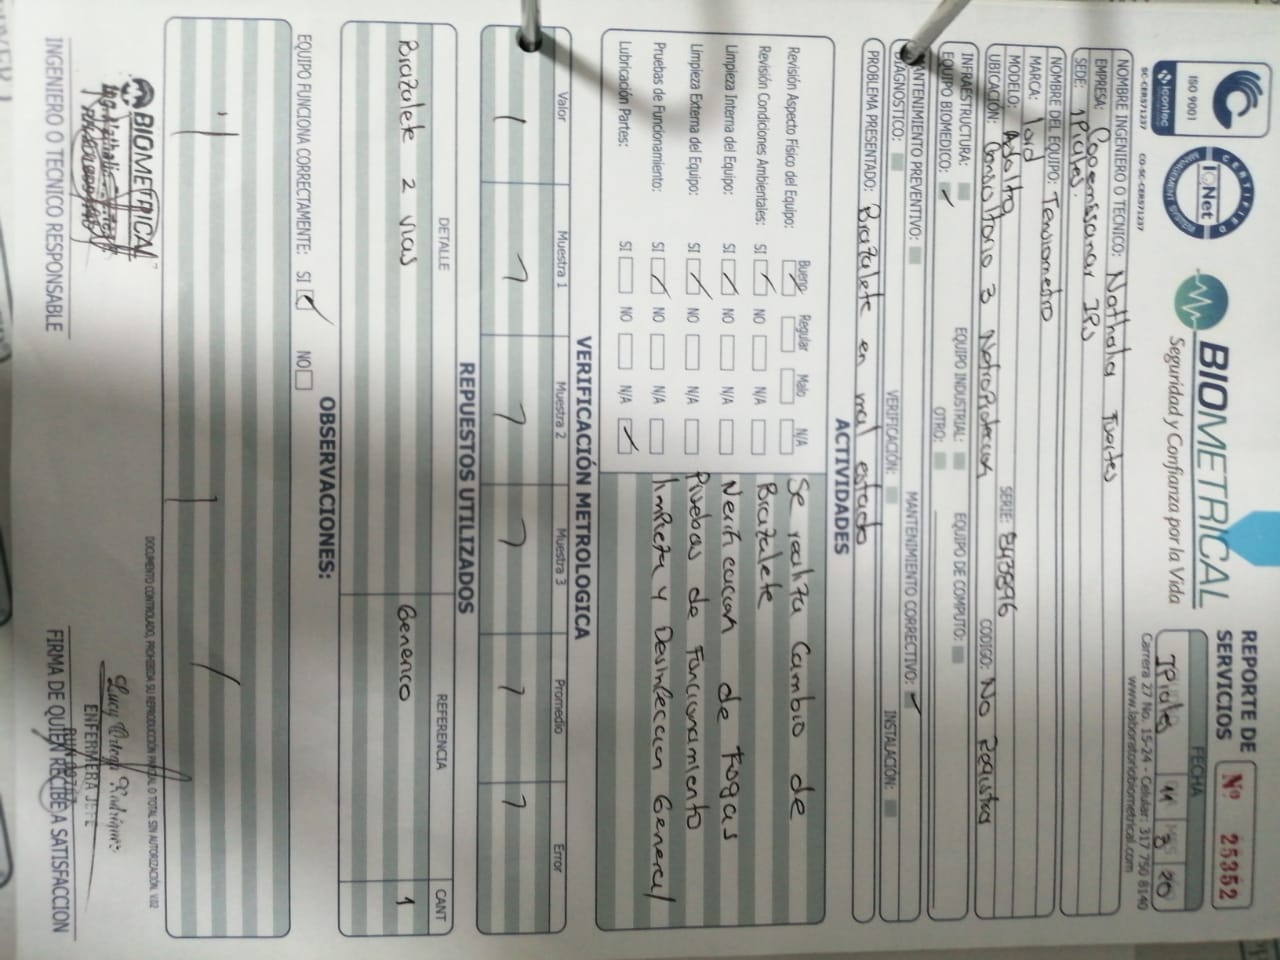 ISO 9001
icontec
SC-CER571237
CO-SC-CER571237
CERTIFIED
IQNet
MANAGEMENT SYSTEM
BIOMETRICAL
Seguridad y Confianza por la Vida
REPORTE DE SERVICIOS
Nº 25352
FECHA
Ipiales 11 3 20
Carrera 27 No. 15-24 - Celular: 317 750 8140
www.laboratoriobiometrical.com
NOMBRE INGENIERO O TECNICO: Nathalia Fuertes
EMPRESA: Cooemssanar IPS
SEDE: Ipiales.
NOMBRE DEL EQUIPO: Tensiometro
MARCA: lord
MODELO: Adulto SERIE: 843896
UBICACIÓN: Consultorio 3 Nefroproteccion CODIGO: No Registra
INFRAESTRUCTURA: EQUIPO INDUSTRIAL: EQUIPO DE COMPUTO:
EQUIPO BIOMEDICO: ✓ OTRO:
MANTENIMIENTO PREVENTIVO: VERIFICACIÓN: MANTENIMIENTO CORRECTIVO: ✓ INSTALACIÓN:
DIAGNOSTICO:
PROBLEMA PRESENTADO: Brazalete en mal estado
ACTIVIDADES
Bueno Regular Malo N/A
Revisión Aspecto Físico del Equipo:
Revisión Condiciones Ambientales: SI NO N/A
Limpieza Interna del Equipo: SI NO N/A
Limpieza Externa del Equipo: SI NO N/A
Pruebas de Funcionamiento: SI NO N/A
Lubricación Partes: SI NO N/A
Se realiza Cambio de
Brazalete
Verificacion de Fugas
Pruebas de Funcionamiento
limpieza y Desinfeccion General
VERIFICACIÓN METROLOGICA
Valor Muestra 1 Muestra 2 Muestra 3 Promedio Error
REPUESTOS UTILIZADOS
DETALLE REFERENCIA CANT
Brazalete 2 vias Generico 1
OBSERVACIONES:
EQUIPO FUNCIONA CORRECTAMENTE: SI NO
DOCUMENTO CONTROLADO, PROHIBIDA SU REPRODUCCIÓN PARCIAL O TOTAL SIN AUTORIZACIÓN. V.02
BIOMETRICAL
INGENIERO O TECNICO RESPONSABLE
Lucy Ortega Rodriguez
ENFERMERA JEFE
FIRMA DE QUIEN RECIBE A SATISFACCION